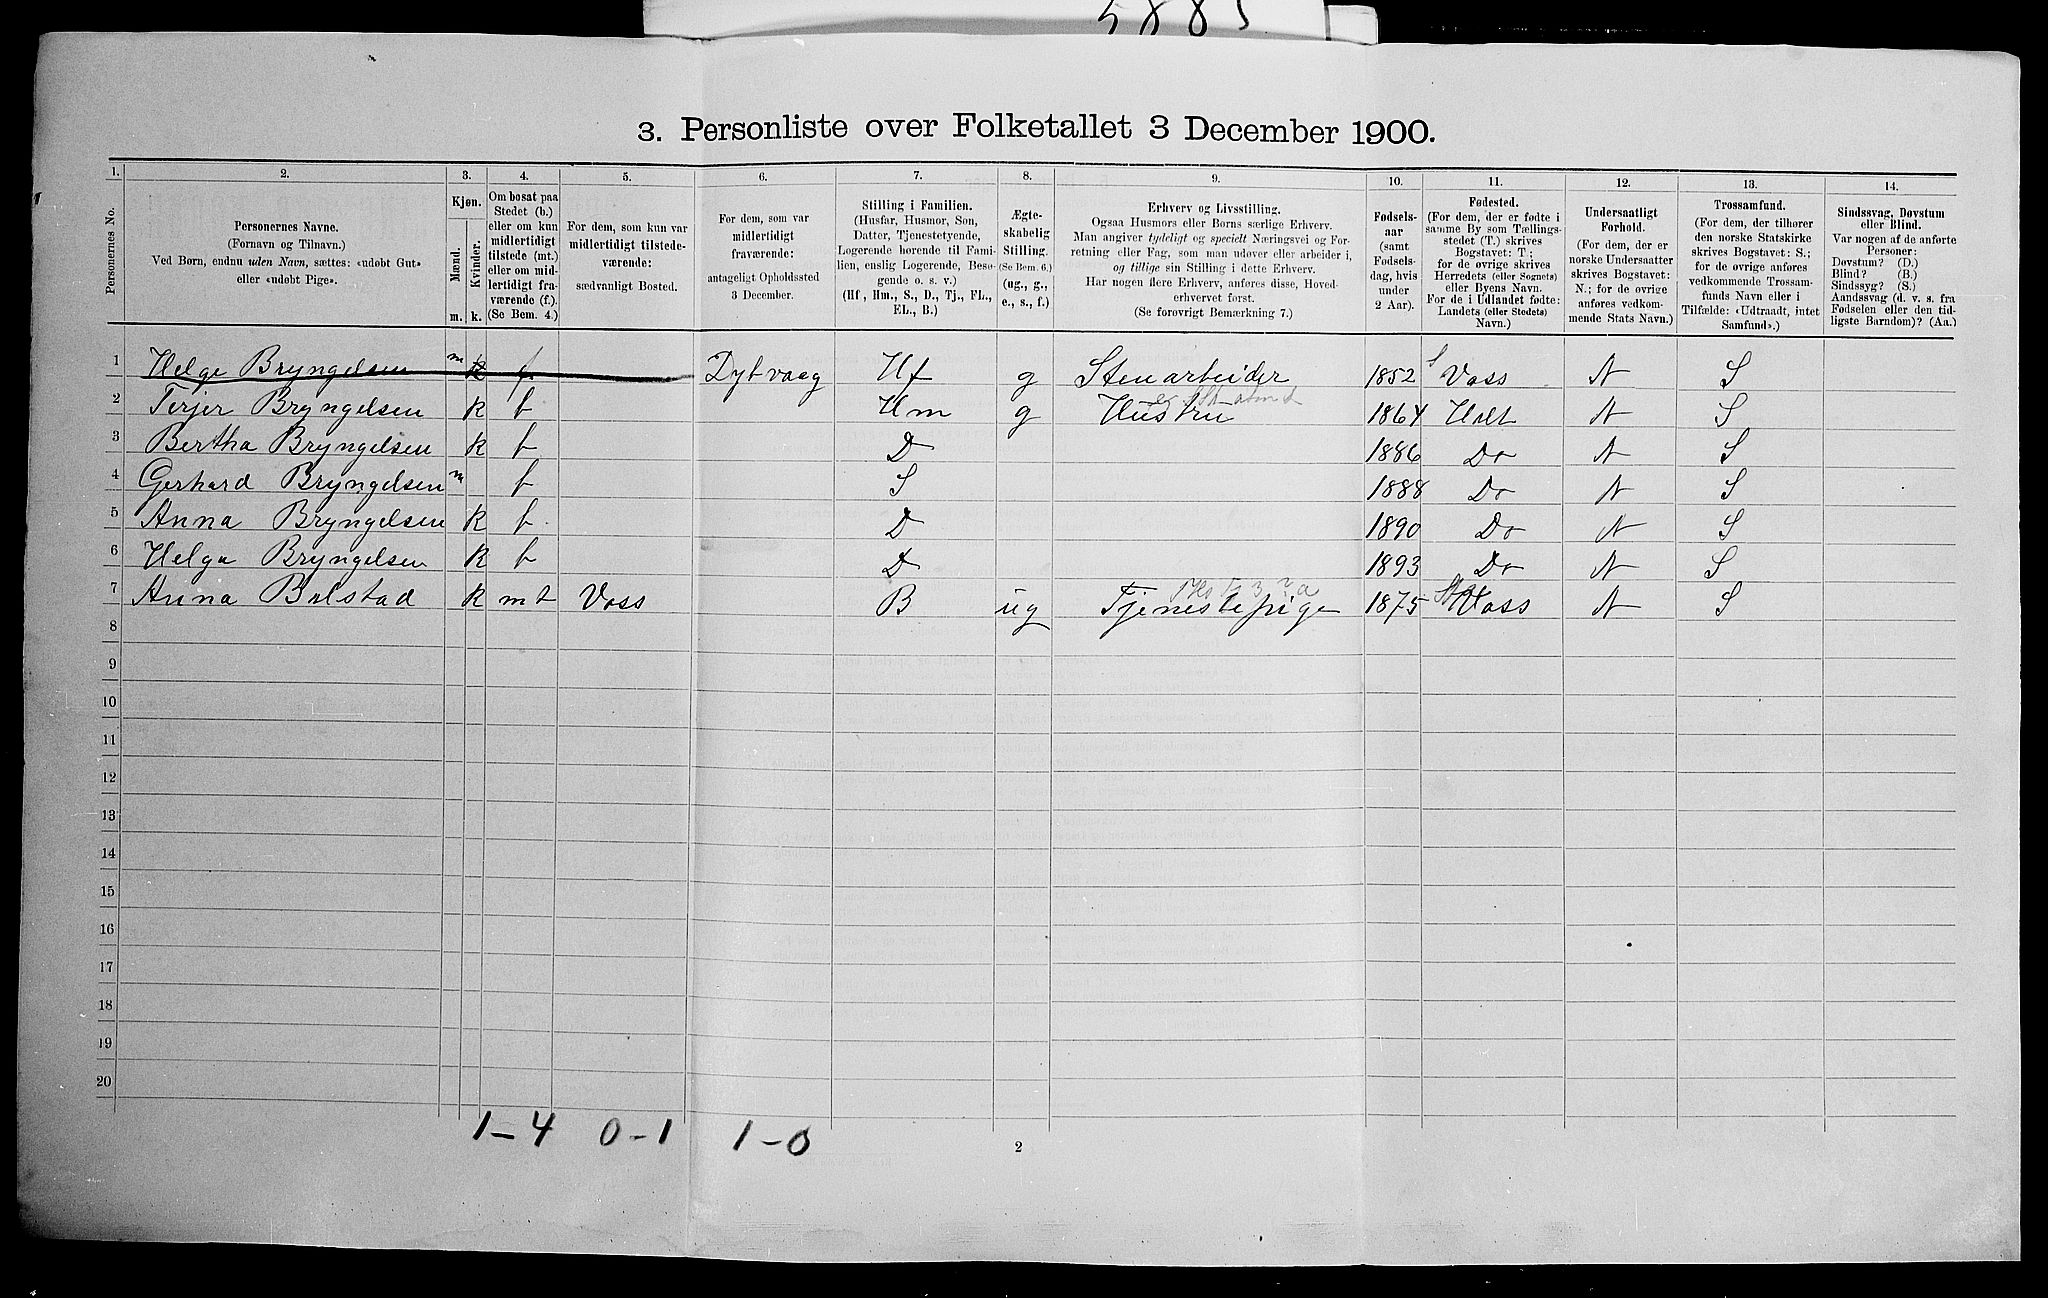 5885
3. Personliste over Folketallet 3 December 1900.
1. 2. 3. 4. 5. 6. 7. 8. 9. 10. 11. 12. 13. 14.
Personernes No.
Personernes Navne.
(Fornavn og Tilnavn.)
Ved Børn, endnu uden Navn, sættes: «udøbt Gut»
eller «udøbt Pige».
Kjøn.
Mænd. Kvinder.
m. k.
Om bosat paa
Stedet (b.)
eller om kun
midlertidigt
tilstede (mt.)
eller om mid-
lertidigt fra-
værende (f.)
(Se Bem. 4.)
For dem, som kun var
midlertidigt tilstede-
værende:
sædvanligt Bosted.
For dem, som var
midlertidigt
fraværende:
antageligt Opholdssted
3 December.
Stilling i Familien.
(Husfar, Husmor, Søn,
Datter, Tjenestetyende,
Logerende hørende til Fami-
lien, enslig Logerende, Besø-
gende o. s. v.)
(Hf., Hm., S., D., Tj., FL.,
EL., B.)
Ægte-
skabelig
Stilling.
(Se Bem. 6.)
(ug., g.,
e., s., f.)
Erhverv og Livsstilling.
Ogsaa Husmors eller Børns særlige Erhverv.
Man angiver tydeligt og specielt Næringsvei og For-
retning eller Fag, som man udøver eller arbeider i,
og tillige sin Stilling i dette Erhverv.
Har nogen flere Erhverv, anføres disse, Hoved-
erhvervet først.
(Se forøvrigt Bemærkning 7.)
Fødsels-
aar
(samt
Fødsels-
dag, hvis
under
2 Aar).
Fødested.
(For dem, der er fødte i
samme By som Tællings-
stedet (T.) skrives
Bogstavet: T;
for de øvrige skrives
Herredets (eller Sognets)
eller Byens Navn.
For de i Udlandet fødte:
Landets (eller Stedets)
Navn.)
Undersaatligt
Forhold.
(For dem, der er
norske Undersaatter
skrives Bogstavet:
N.; for de øvrige
anføres vedkom-
mende Stats Navn.)
Trossamfund.
(For dem, der tilhører
den norske Statskirke
skrives Bogstavet: S.;
for de øvrige anføres
vedkommende Trossam-
funds Navn eller i
Tilfælde: «Udtraadt, intet
Samfund».)
Sindssvag, Døvstum
eller Blind.
Var nogen af de anførte
Personer:
Døvstum? (D.)
Blind? (B.)
Sindssyg? (S.)
Aandssvag (d. v. s. fra
Fødselen eller den tid-
ligste Barndom)? (Aa.)
1 Helge Bryngelsen m k f Dybvaag Hf g Stenarbeider 1852 Voss N S
2 Terjer Bryngelsen k b Hm g Hustru 1864 Holt N S
3 Bertha Bryngelsen k b D 1886 Do N S
4 Gerhard Bryngelsen m b S 1888 Do N S
5 Anna Bryngelsen k b D 1890 Do N S
6 Helga Bryngelsen k b D 1893 Do N S
7 Anna Bolstad k mt Voss B ug Tjenestepige 1875 Voss N S
8
9
10
11
12
13
14
15
16
17
18
19
20
1-4 0-1 1-0
2